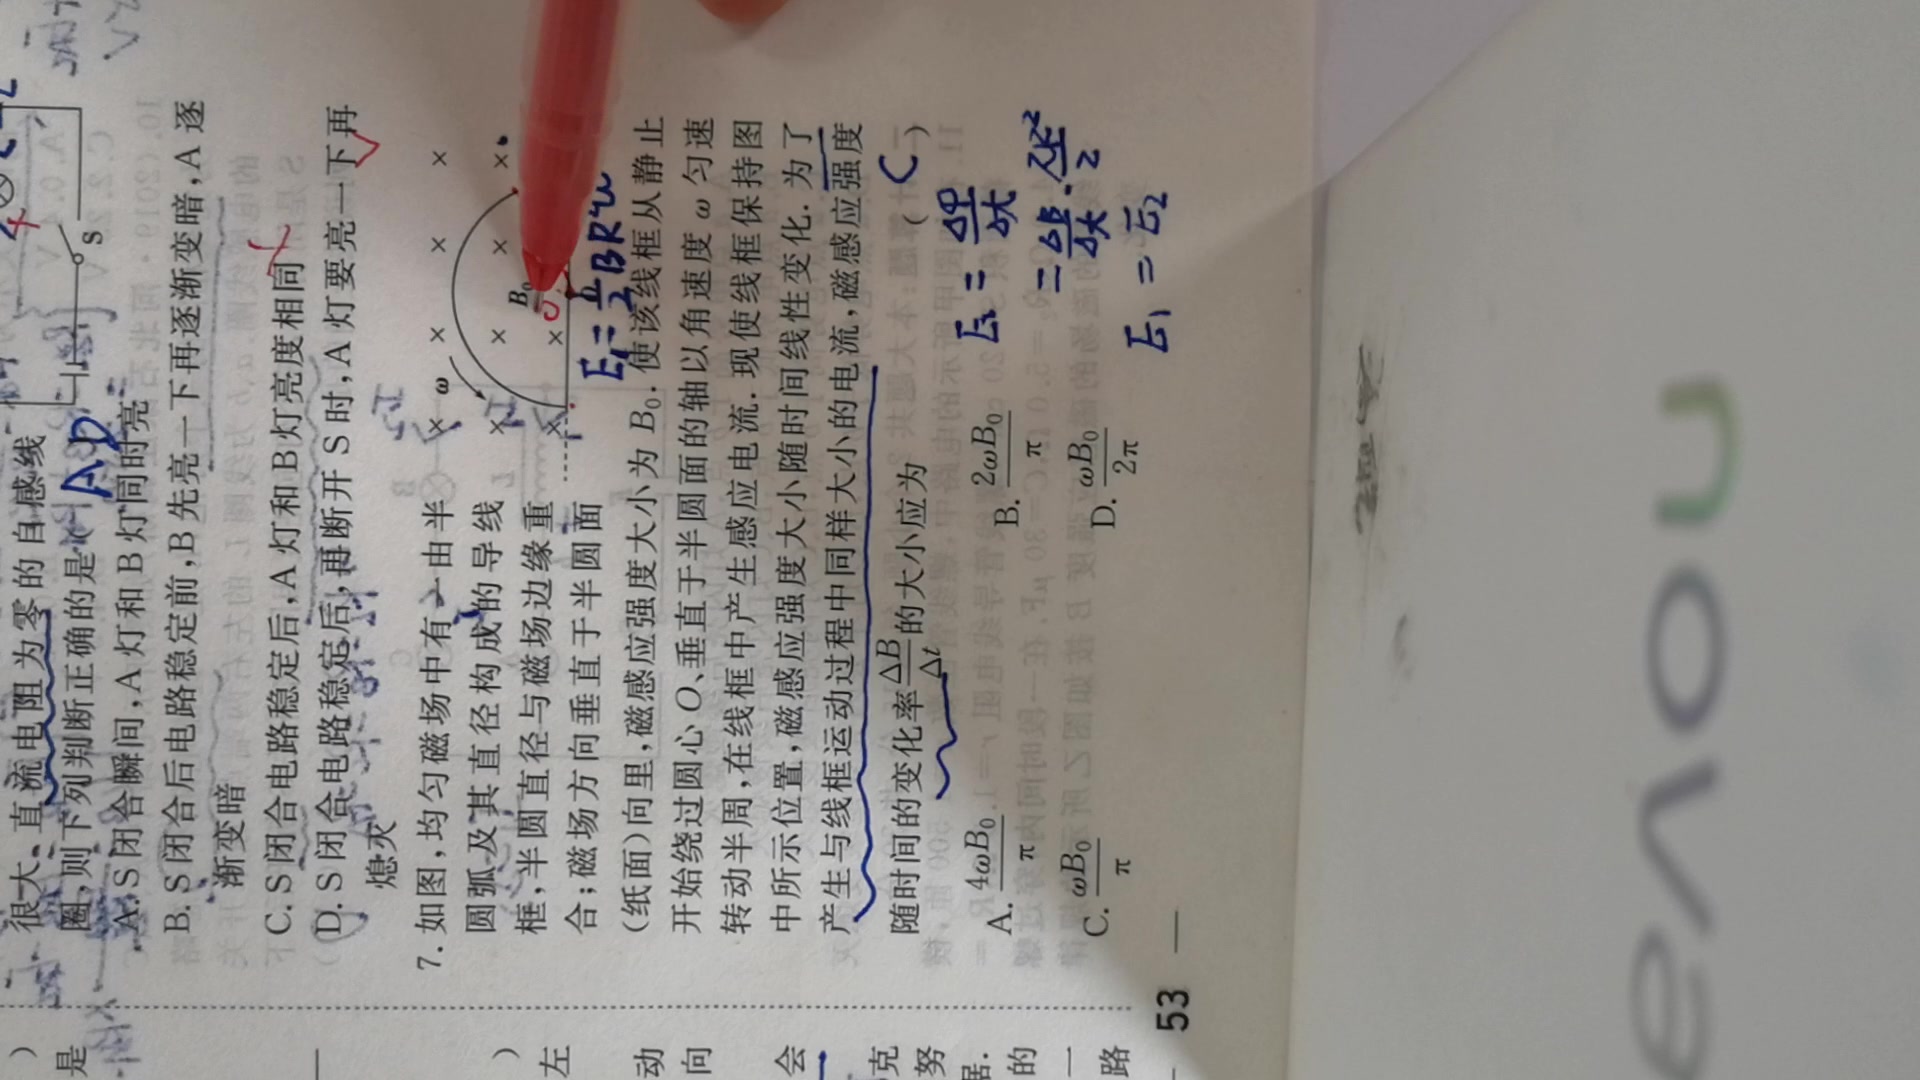 很大、直流电阻为零的自感线
圈,则下列判断正确的是
AD
A. S闭合瞬间,A灯和B灯同时亮
B. S闭合后电路稳定前,B先亮一下再逐渐变暗,A逐
渐变暗
C. S闭合电路稳定后,A灯和B灯亮度相同
D. S闭合电路稳定后,再断开S时,A灯要亮一下再
熄灭
S
7. 如图,均匀磁场中有一由半
圆弧及其直径构成的导线
框,半圆直径与磁场边缘重
合;磁场方向垂直于半圆面
(纸面)向里,磁感应强度大小为B₀. 使该线框从静止
开始绕过圆心O、垂直于半圆面的轴以角速度ω匀速
转动半周,在线框中产生感应电流. 现使线框保持图
中所示位置,磁感应强度大小随时间线性变化. 为了
产生与线框运动过程中同样大小的电流,磁感应强度
随时间的变化率ΔB/Δt的大小应为 ( C )
A. 4ωB₀/π B. 2ωB₀/π
C. ωB₀/π D. ωB₀/2π
ω
B₀
× × × ×
× × × ×
× ×
E₂ = ΔΦ/Δt
= ΔB/Δt · πR²/2
E₁ = E₂
53
)
是
)
左
动
向
会
克
努
据.
的
一
路